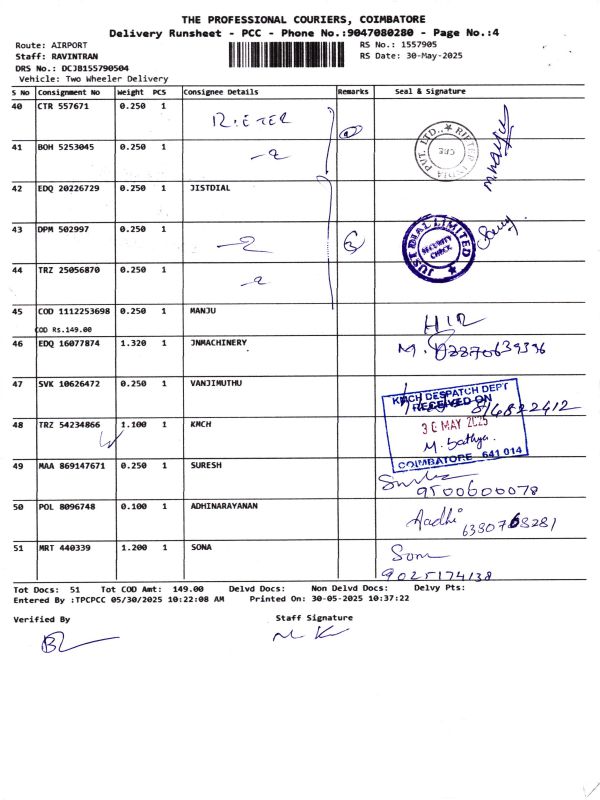 THE PROFESSIONAL COURIERS, COIMBATORE
Delivery Runsheet - PCC - Phone No.:9047080280 - Page No.:4
Route: AIRPORT
RS No.: 1557905
Staff: RAVINTRAN
RS Date: 30-May-2025
DRS No.: DCJB155790504
Vehicle: Two Wheeler Delivery
S No Consignment No Weight PCS Consignee Details Remarks Seal & Signature
40 CTR 557671 0.250 1 RIETER
RIETER INDIA PVT. LTD., CBE
41 BOH 5253045 0.250 1
42 EDQ 20226729 0.250 1 JISTDIAL
43 DPM 502997 0.250 1
JUST DIAL LIMITED
SECURITY CHECK
44 TRZ 25056870 0.250 1
45 COD 1112253698 0.250 1 MANJU
COD Rs.149.00
46 EDQ 16077874 1.320 1 JNMACHINERY
47 SVK 10626472 0.250 1 VANJIMUTHU
48 TRZ 54234866 1.100 1 KMCH
KMCH DESPATCH DEPT
RECEIVED ON
30 MAY 2025
M. Sathya.
COIMBATORE - 641 014
49 MAA 869147671 0.250 1 SURESH
9500600078
50 POL 8096748 0.100 1 ADHINARAYANAN Aadhi
51 MRT 440339 1.200 1 SONA Som
9025174138
Tot Docs: 51 Tot COD Amt: 149.00 Delvd Docs: Non Delvd Docs: Delvy Pts:
Entered By :TPCPCC 05/30/2025 10:22:08 AM Printed On: 30-05-2025 10:37:22
Verified By
Staff Signature